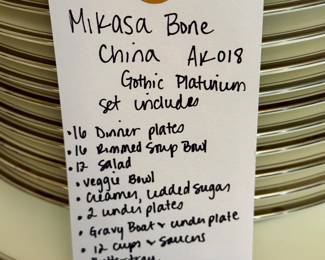 Mikasa Bone
China AK018
Gothic Platinium
set includes
• 16 Dinner plates
• 16 Rimmed Soup Bowl
• 12 Salad
• veggie Bowl
• Creamer, Lidded Sugar
• 2 under plates
• Gravy Boat & under plate
• 12 cups & saucers